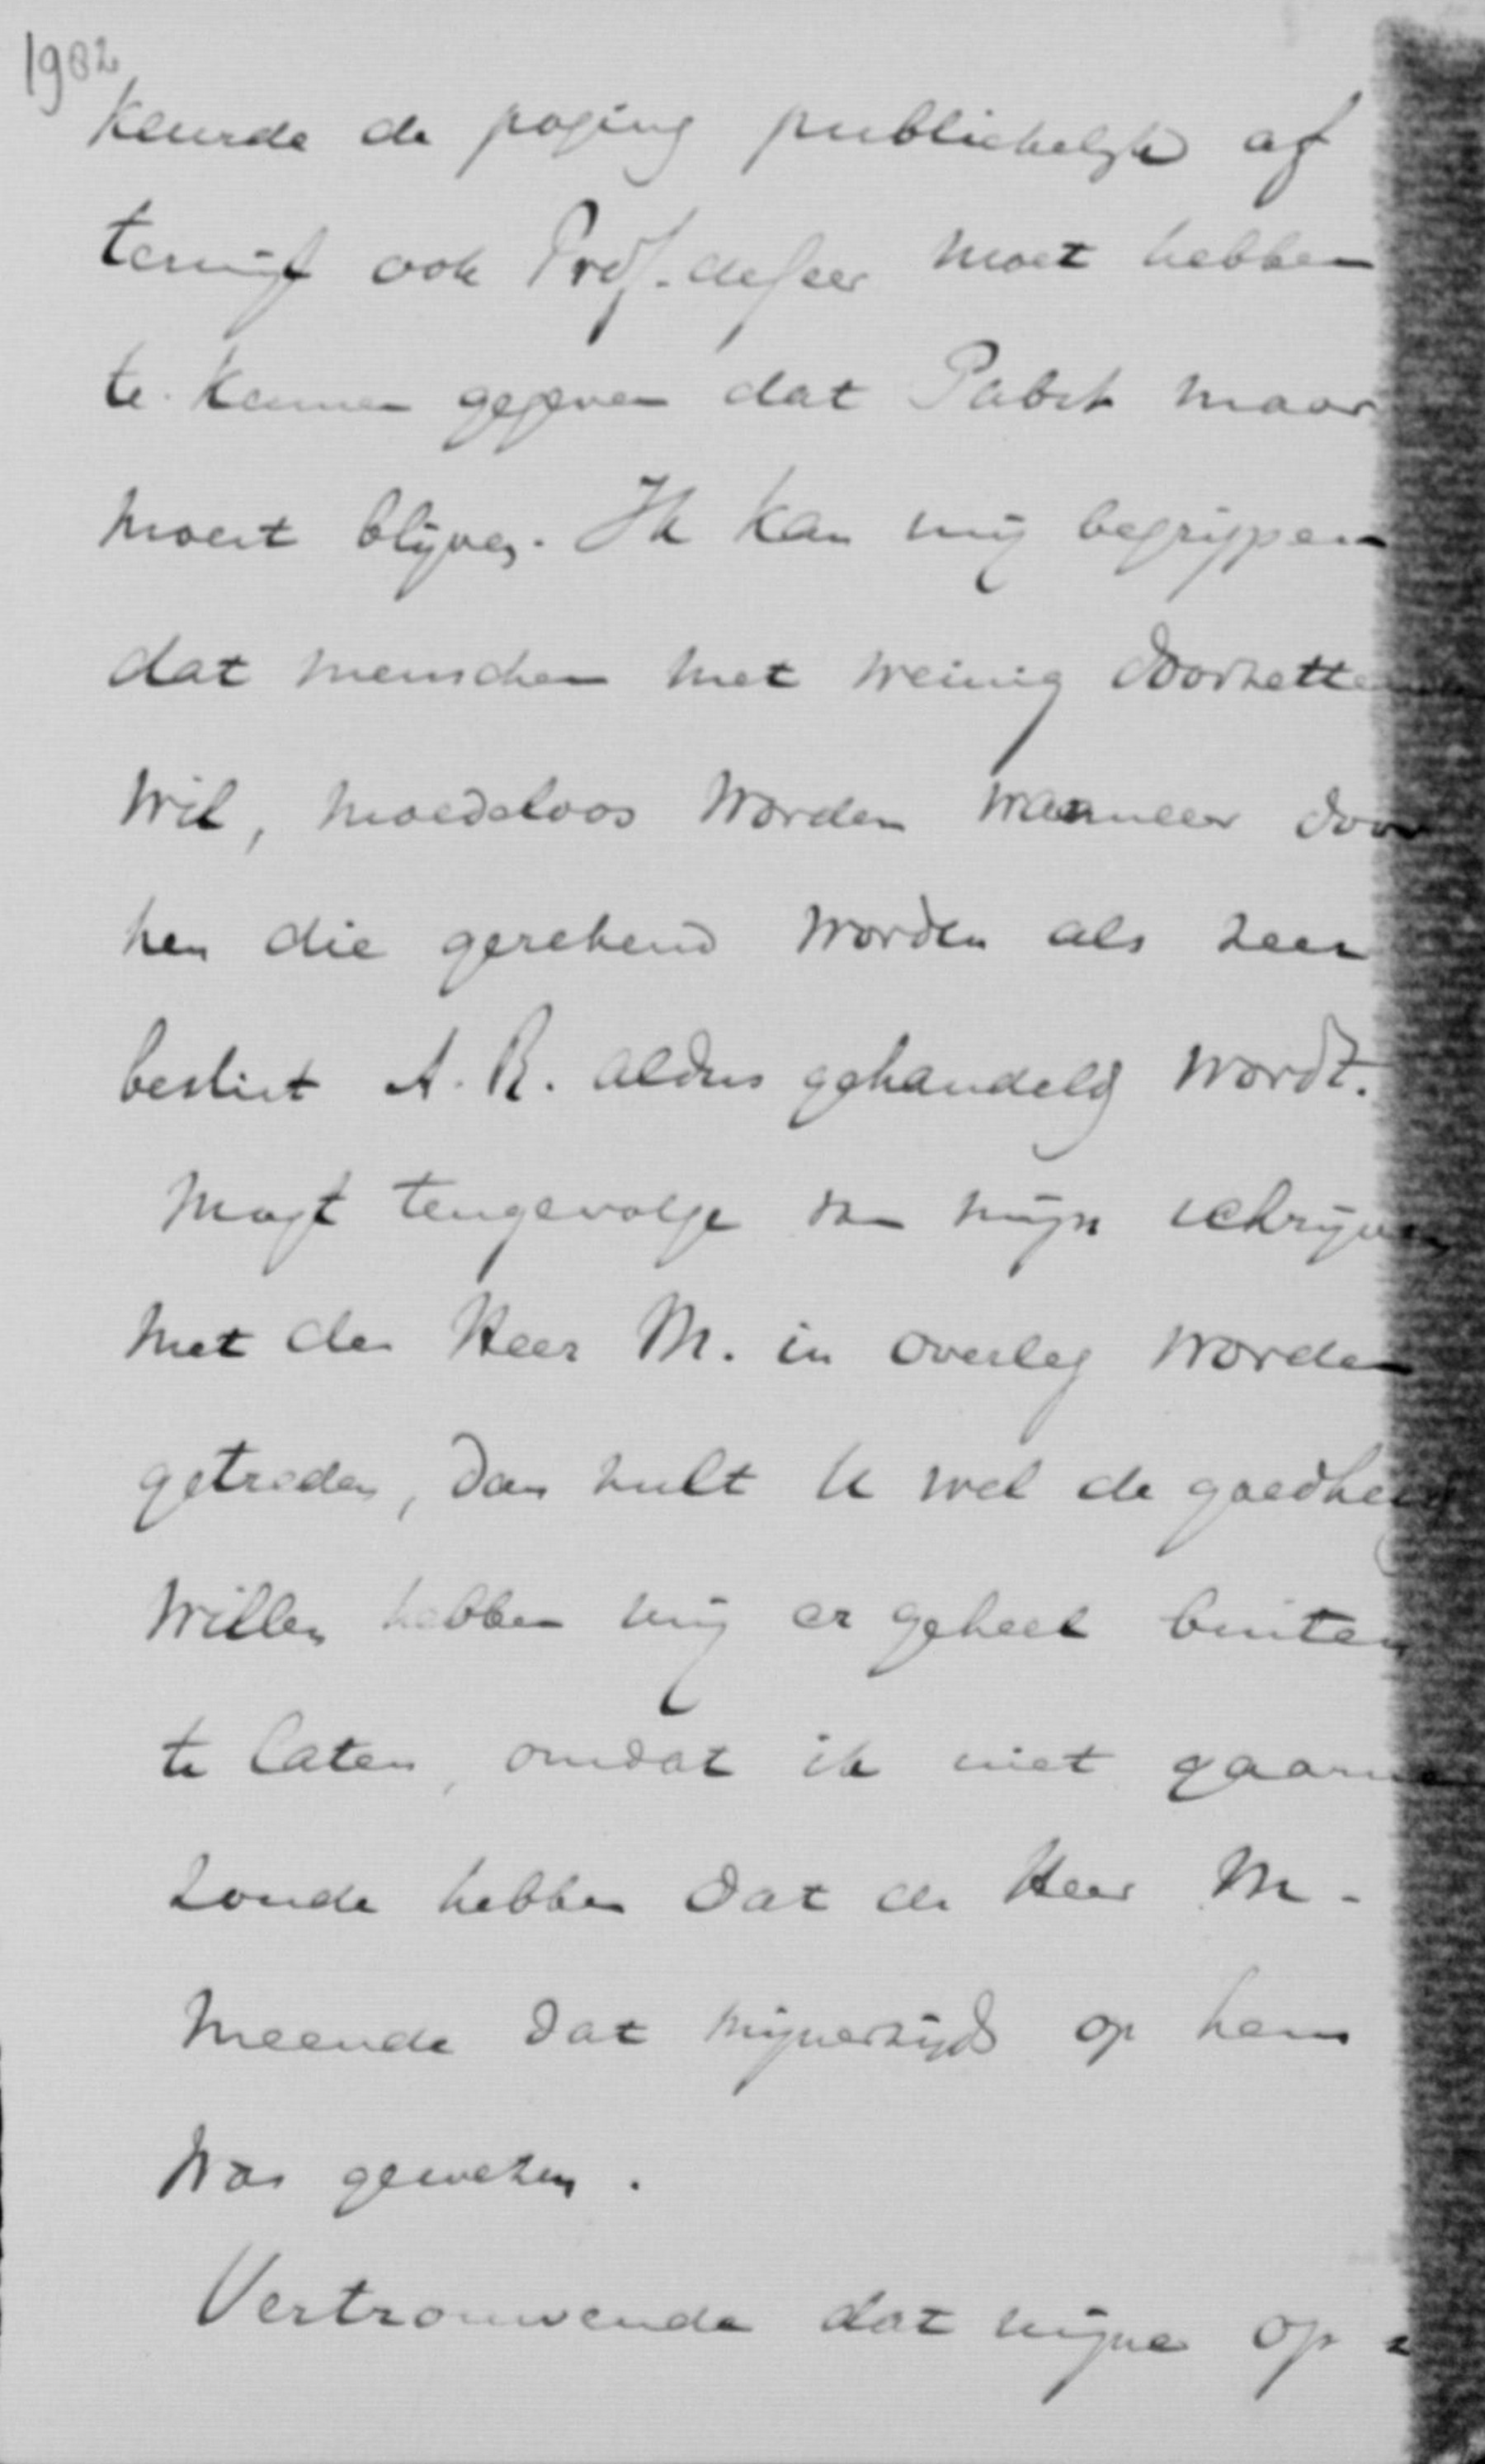 1902
keurde de poging publiekelijk af
terwijl ook Prof. de Geer moet hebben
te kennen gegeven dat Pabst maar
moest blijven. Ik kan mij begrijpen
dat menschen met weinig doorzettend
wil, moedeloos worden wanneer door
hen die gerekend worden als zeer
beslist A.R. aldus gehandeld wordt.
Mogt tengevolge van mijn schrijven
met den Heer M. in overleg worden
getreden, dan zult U wel de goedheid
willen hebben mij er geheel buiten
te laten, omdat ik niet gaarne
zoude hebben dat de Heer M.
meende dat mijnerzijds op hem
was gewezen.
Vertrouwende dat mijne op